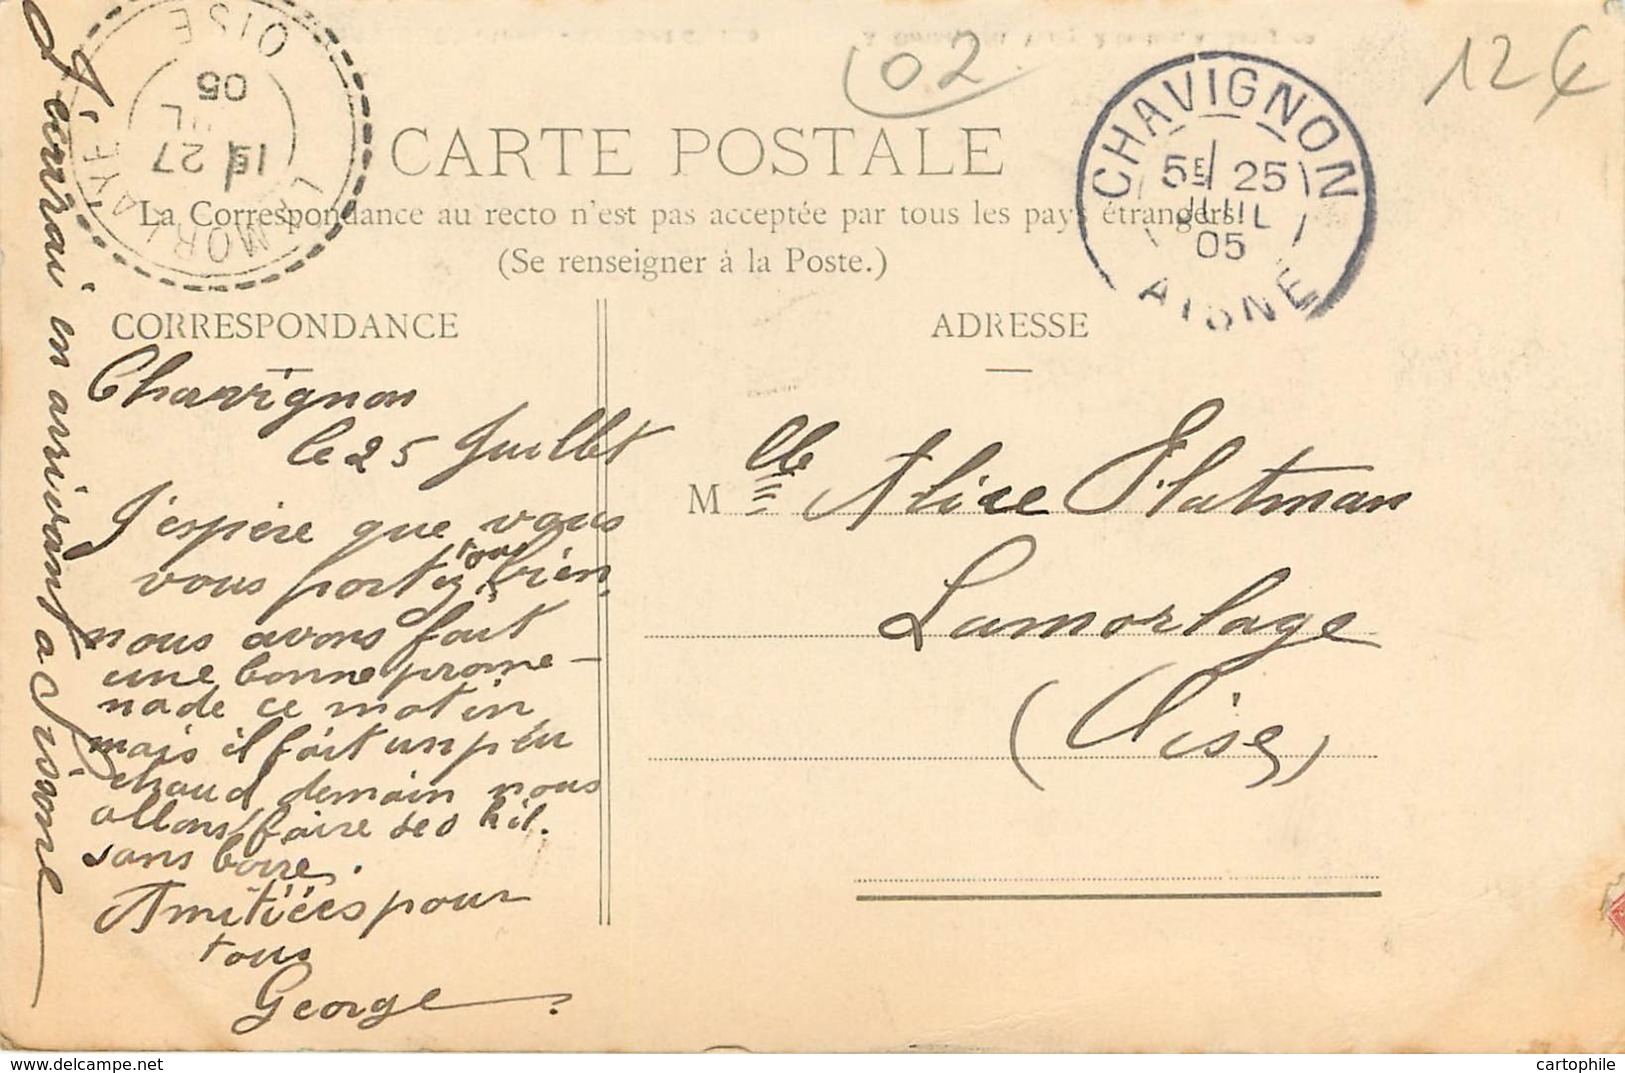 02
12 €
CHAVIGNON
5E 25
JUIL
05
AISNE
OISE
05
1E 27
LAMORLAYE
CARTE POSTALE
La Correspondance au recto n'est pas acceptée par tous les pays étrangers.
(Se renseigner à la Poste.)
CORRESPONDANCE
ADRESSE
Chavignon
le 25 Juillet
J'espère que vous
vous portez tous bien,
nous avons fait
une bonne prome-
nade ce matin
mais il fait un peu
chaud, demain nous
allons faire des kil.
sans boire.
Amitiées pour
tous
George
J'écrirai en arrivant a Sissone
Mlle Alice Flatman
Lamorlage
(Oise)
www.delcampe.net
cartophile